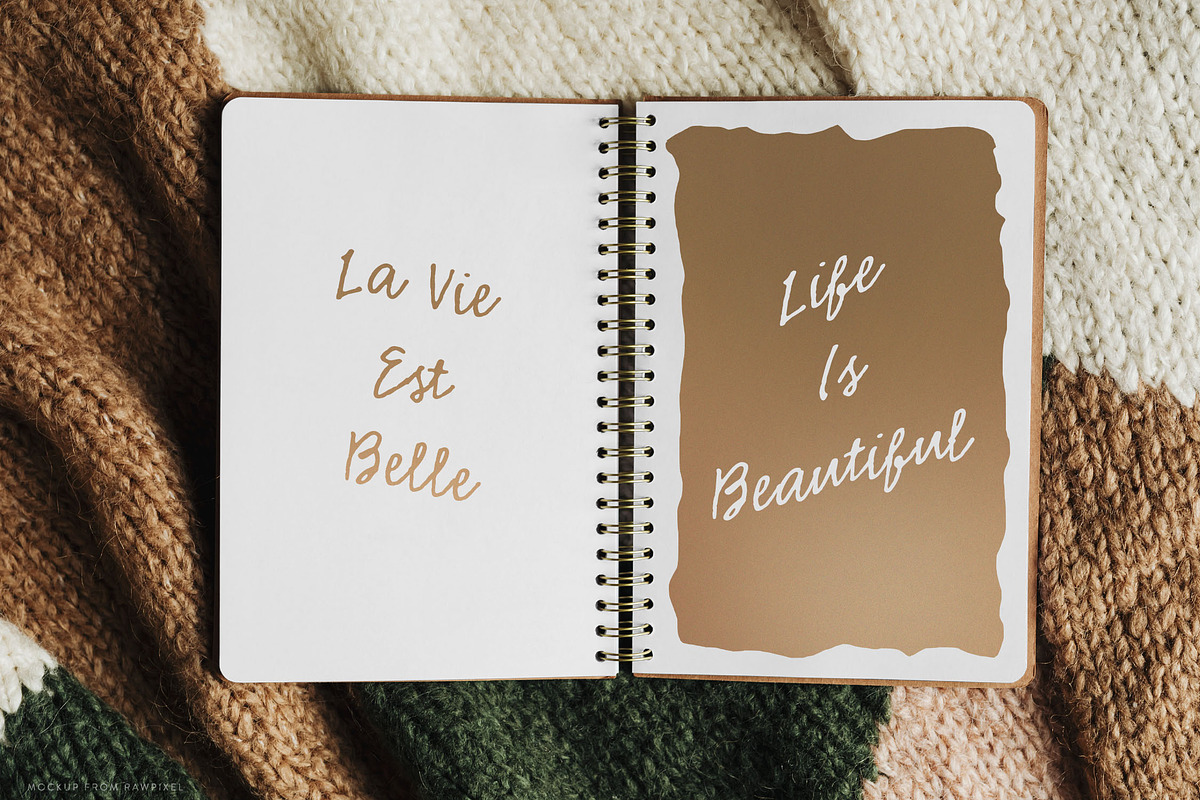 La Vie
Est
Belle
Life
Is
Beautiful
MOCKUP FROM RAWPIXEL